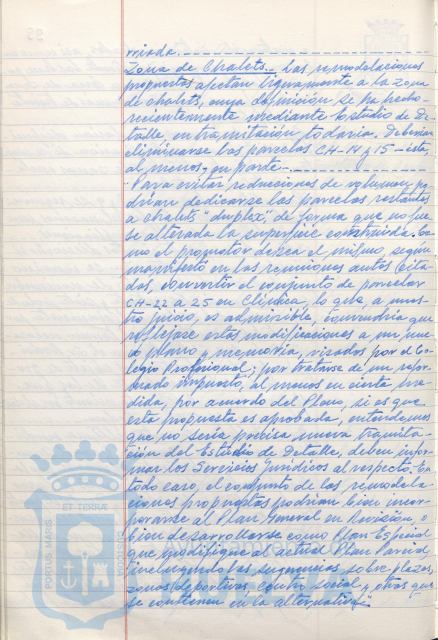 rriada.
Zona de Chalets.- Las remodelaciones
propuestas afectan ligeramente a la zona
de chalets, cuya definición se ha hecho
recientemente mediante Estudio de De-
talle, en tramitación todavía. Deberían
eliminarse las parcelas CH-14 y 15 - éste,
al menos, en parte.
Para evitar reducciones de volumen, po-
drían dedicarse las parcelas restantes
a chalets "duplex", de forma que no fue-
se alterada la superficie construida. Co-
mo el promotor desea el mismo, según
manifestó en las reuniones antes cita-
das, convertir el conjunto de parcelas
CH-22 a 25 en Clínica, lo que, a nues-
tro juicio, es admisible, convendría que
reflejase estas modificaciones a un nue-
vo plano y memoria, visados por el Co-
legio Profesional; por tratarse de un refor-
mado impuesto, al menos en cierta me-
dida, por acuerdo del Pleno, si es que
esta propuesta es aprobada, entendemos
que no sería precisa nueva tramita-
ción del Estudio de Detalle, deben infor-
mar los Servicios Jurídicos al respecto. En
todo caso, el conjunto de las remodela-
ciones propuestas podrían bien incor-
porarse al Plan General en Revisión, o
bien desarrollarse como Plan Especial
que modifique al actual Plan Parcial,
incluyendo las sugerencias sobre plazas,
zonas deportivas, centro social y otras que
se contienen en la alternativa"
PORTUS MARIS
ET TERRÆ
CUSTODIA